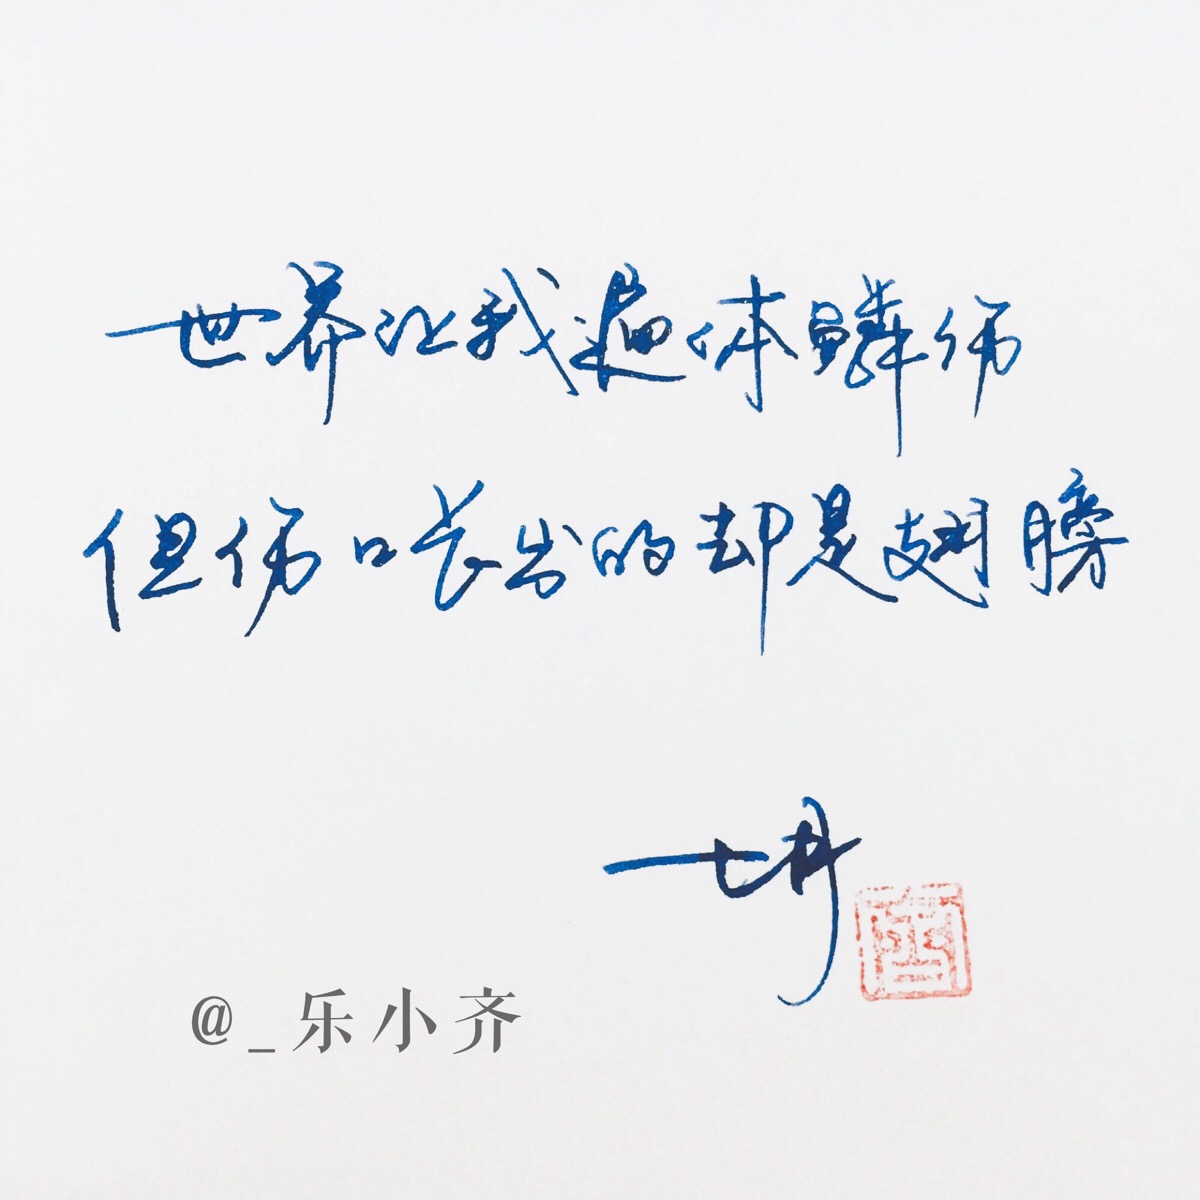 世界让我遍体鳞伤
但伤口长出的却是翅膀
@_乐小齐